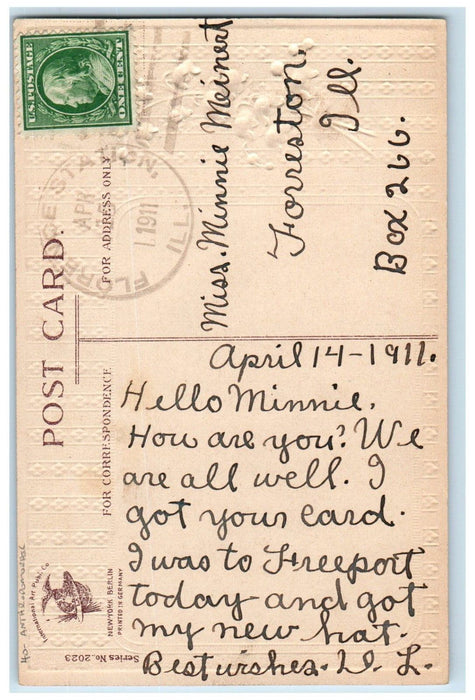 U.S. POSTAGE
ONE CENT
FLORENCE STATION,
APR
1911
ILL.
POST CARD.
FOR ADDRESS ONLY
FOR CORRESPONDENCE
Miss. Minnie Meinert
Forreston,
Ill.
Box 266.
April 14-1911.
Hello Minnie.
How are you? We
are all well. I
got your card.
I was to Freeport
today and got
my new hat.
Best wishes.
International Art Publ. Co.
NEW YORK BERLIN
PRINTED IN GERMANY
Series No. 2023